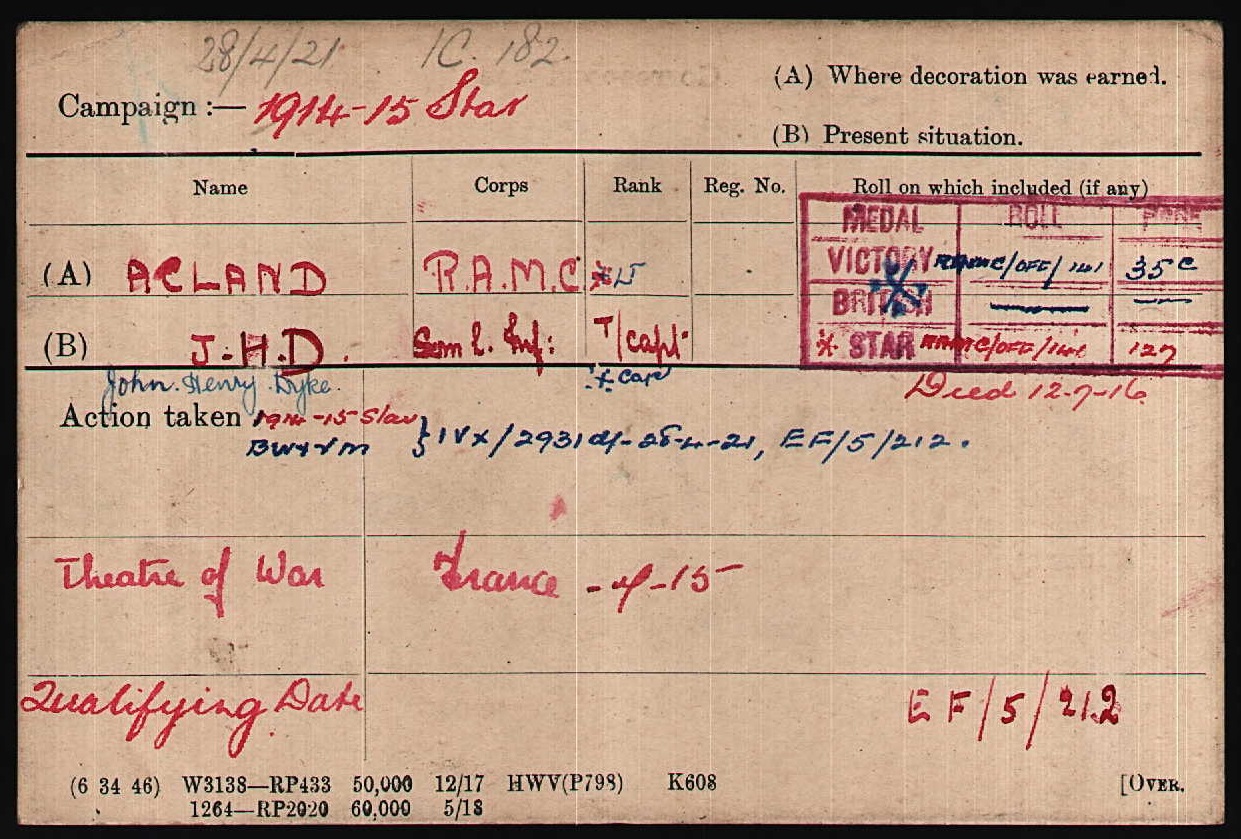 28/4/21 IC. 182.
(A) Where decoration was earned.
Campaign :— 1914-15 Star
(B) Present situation.
Name Corps Rank Reg. No. Roll on which included (if any)
MEDAL ROLL PAGE
(A) ACLAND R.A.M.C. * Lt VICTORY RAMC/OFF/141 35C
BRITISH
(B) J.H.D. Som L. Inf: T/Capt. * STAR RAMC/OFF/14 127
John Henry Dyke. * Capt Died 12-7-16
Action taken 1914-15 Star
BW & VM } IVX/2931 d/- 28-4-21, EF/5/212.
Theatre of War France -4-15
Qualifying Date EF/5/212
(6 34 46) W3138—RP433 50,000 12/17 HWV(P798) K608 [OVER.
1264—RP2020 60,000 5/18